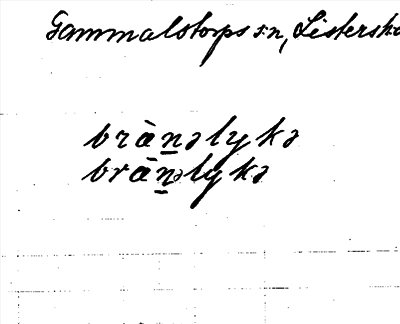 Gammalstorps sn, Listersk
bràn̲əlykə
bràn̲əlykə